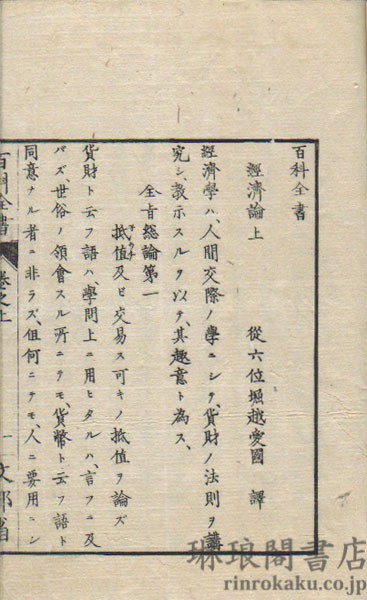 百科全書
經濟論上
從六位堀越愛國 譯
經濟學ハ、人間交際ノ學ニシテ、貨財ノ法則ヲ講
究シ、教示スルヲ以テ、其趣意ト為ス、
全旨総論第一
抵値及ヒ交易ス可キノ抵値ヲ論ズ
貨財ト云フ語ハ、學問上ニ用ヒタルハ、言フニ及
バズ、世俗ノ領會スル所ニテモ、貨幣ト云フ語ト
同意ナル者ニ非ラズ、但何ニテモ、人ニ要用ニシ
百科全書
卷之上
一
文部省
琳琅閣書店
rinrokaku.co.jp